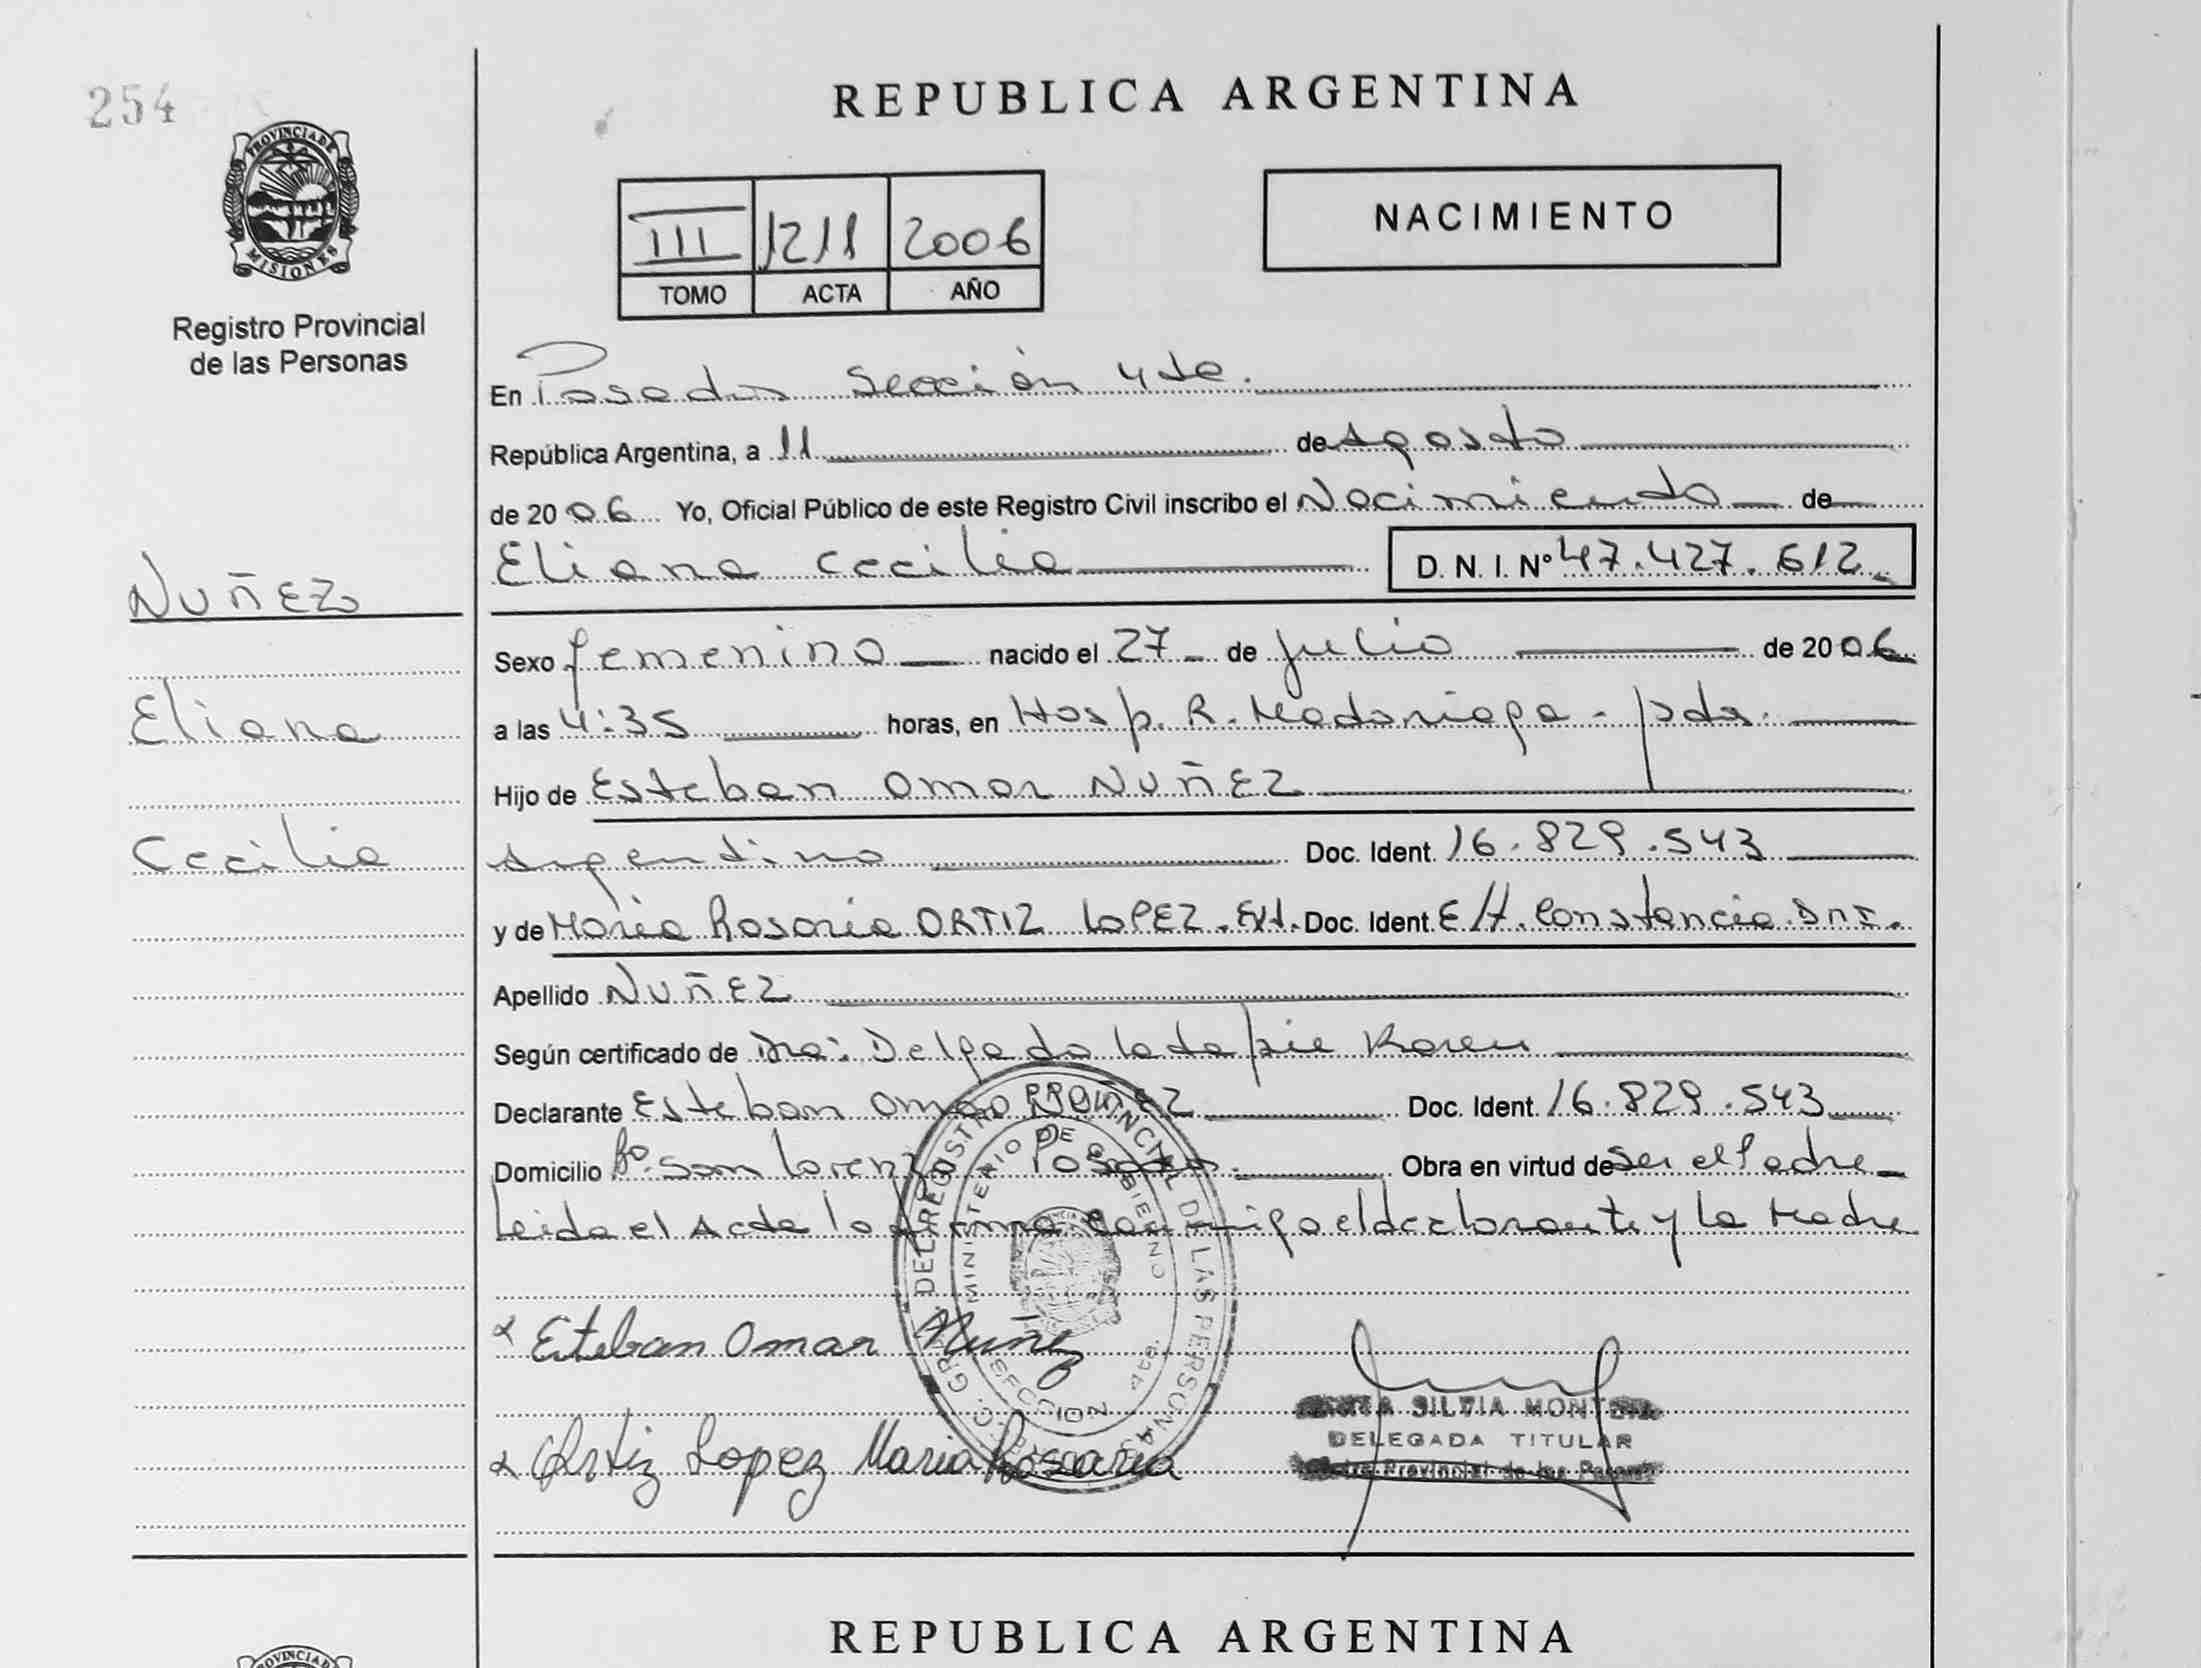 254
PROVINCIA DE
MISIONES
Registro Provincial
de las Personas
REPUBLICA ARGENTINA
III 1211 2006
TOMO ACTA AÑO
NACIMIENTO
En Posadas Sección 4ta.
República Argentina, a 11 de Agosto
de 2006 Yo, Oficial Público de este Registro Civil inscribo el Nacimiento de
Eliana Cecilia D. N. I. Nº 47.427.612
NUÑEZ
Eliana
Cecilia
Sexo femenino nacido el 27 de julio de 2006
a las 4:35 horas, en Hosp. R. Madariaga - Pdas.
Hijo de Esteban Omar NUÑEZ
Argentino Doc. Ident. 16.829.543
y de Maria Rosaria ORTIZ LOPEZ. Ext. Doc. Ident. E/t. Constancia. DNI.
Apellido NUÑEZ
Según certificado de Dra: Delgado Karen
Declarante Esteban Omar NUÑEZ Doc. Ident. 16.829.543
Domicilio Bº. San Lorenzo Posadas. Obra en virtud de ser el Padre
Leida el Acta la firma conmigo el declarante y la Madre
DEL REGISTRO PROVINCIAL DE LAS PERSONAS
MINISTERIO DE GOBIERNO
Esteban Omar Nuñez
Ortiz Lopez Maria Rosaria
SILVIA
DELEGADA TITULAR
Provincial de las
REPUBLICA ARGENTINA
PROVINCIA